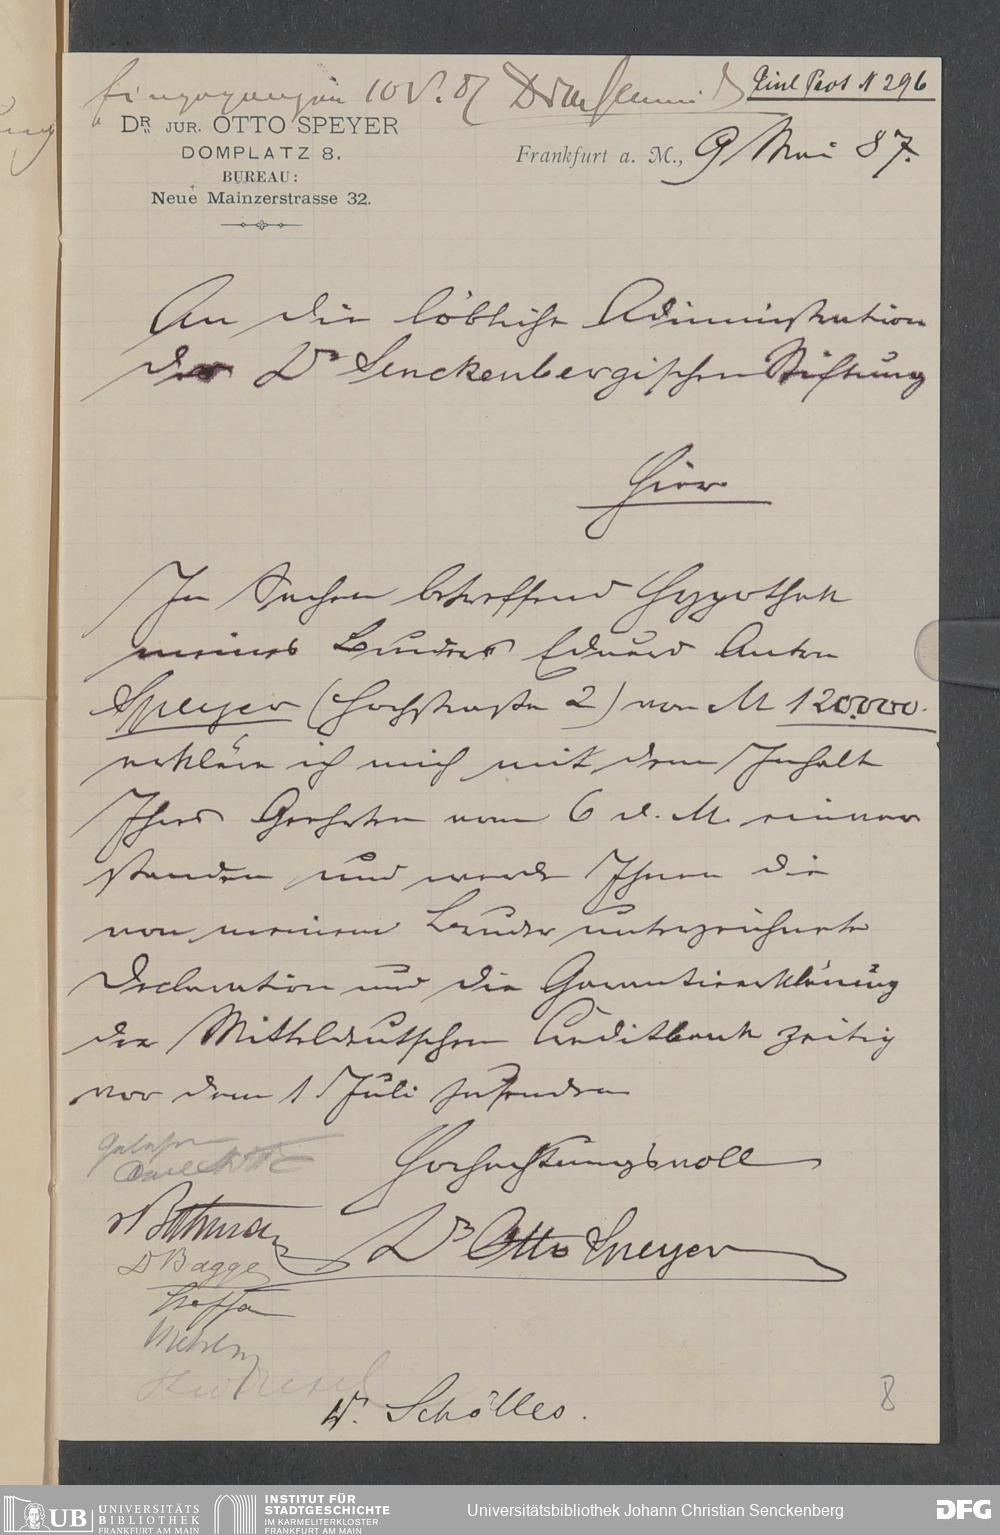 eingegangen 10 V. 87
Einl Prot N 296
DR. JUR. OTTO SPEYER
DOMPLATZ 8.
BUREAU:
Neue Mainzerstrasse 32.
Frankfurt a. M., 9 Mai 87.
An die löbliche Administration
der Dr Senckenbergischen Stiftung
Hier
In Sachen betreffend Hypothek
meines Bruders Eduard Anton
Speyer (Hochstraße 2) von M 120.000.
erkläre ich mich mit dem Inhalt
Ihres Geehrten vom 6 d. M. einver
standen und werde Ihnen die
von meinem Bruder unterzeichnete
Declaration und die Garantieerklärung
der Mitteldeutschen Creditbank zeitig
vor dem 1 Juli zusenden
Hochachtungsvoll
Dr Otto Speyer
gelesen
Carl
vBethmann
Dr Bagge
W. Schölles.
8
UB UNIVERSITÄTS
BIBLIOTHEK
FRANKFURT AM MAIN
INSTITUT FÜR
STADTGESCHICHTE
IM KARMELITERKLOSTER
FRANKFURT AM MAIN
Universitätsbibliothek Johann Christian Senckenberg
DFG